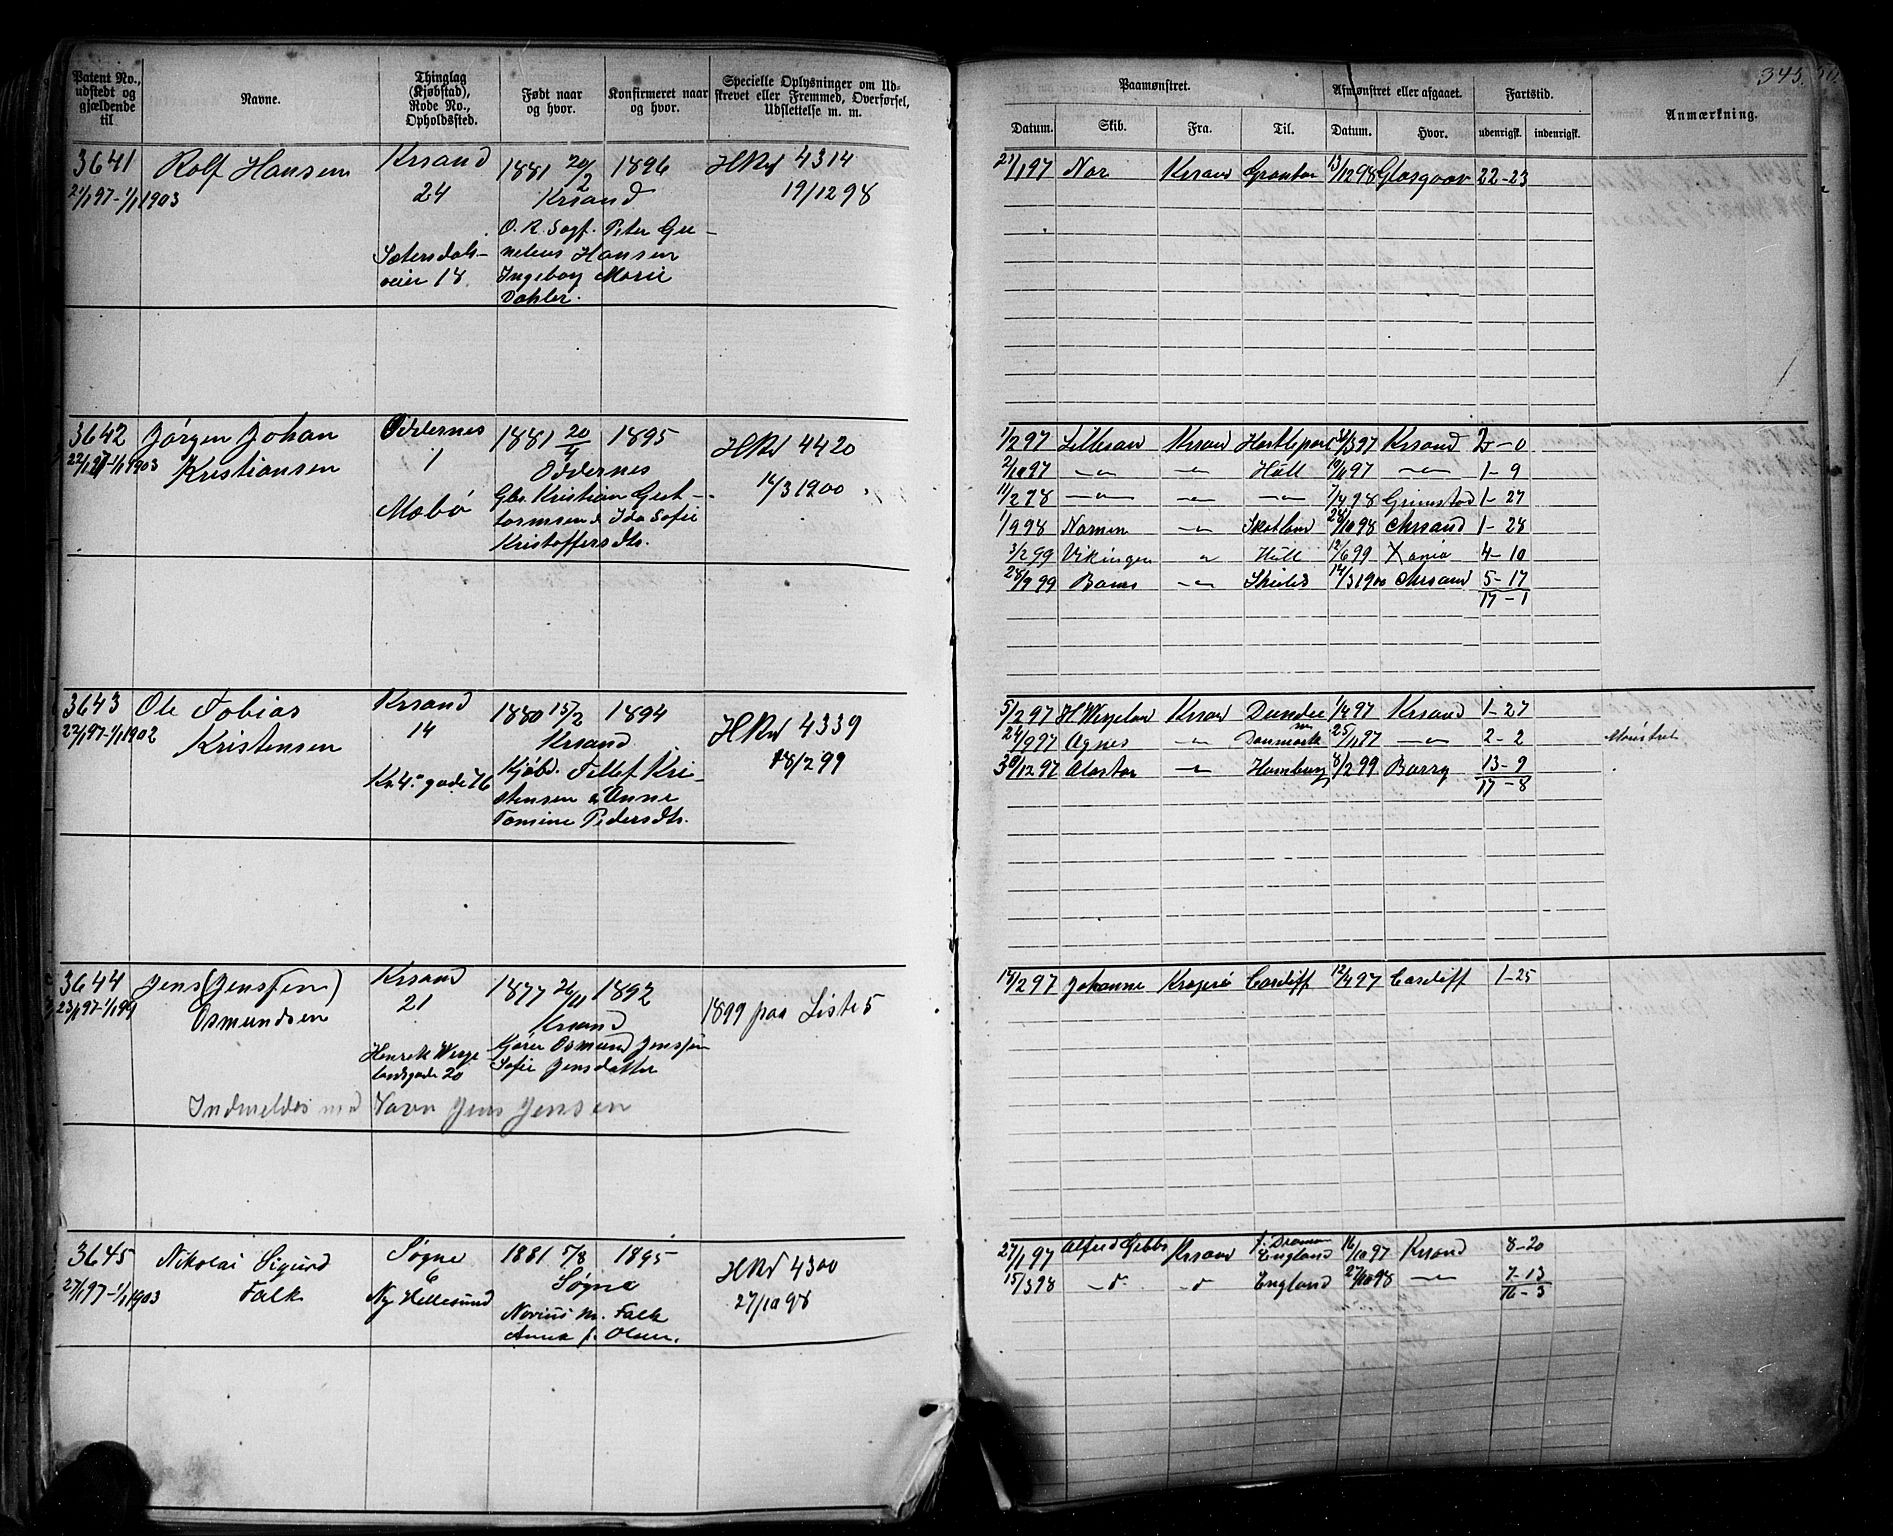 345.
Patent No., udstedt og gjældende til
Navne.
Thinglag (Kjøbstad), Rode No., Opholdssted.
Født naar og hvor.
Konfirmeret naar og hvor.
Specielle Oplysninger om Udskrevet eller Fremmed, Overførsel, Udslettelse m. m.
Paamønstret.
Afmønstret eller afgaaet.
Fartstid.
Anmærkning.
Datum. Skib. Fra. Til. Datum. Hvor. udenrigsk. indenrigsk.
3641 Rolf Hansen Krsand 1881 20/2 1896 HRul 4314
21/1 97-1/1 1903 24 Krsand 19/12 98
Sætersdals- O. R. Sagf. Peter
veien 18 Hansen
Ingeborg Marie
Dahler.
21/1 97 Nor Krsan Granton 13/12 98 Glasgow 22-23
3642 Jørgen Johan Oddernes 1881 20/4 1895 HRul 4420
22/1 97-1/1 1903 Kristiansen 1 Oddernes 14/3 1900
Mæbø Gbr. Kristian Gut-
tormsen & Ida Sofie
Kristoffersdtr.
1/2 97 Lillesan Krsan 31/3 97 Krsand 2-0
2/10 97 -"- -"- Hull -"- 1-9
11/2 98 -"- -"- -"- 7/4 98 Grimstad 1-27
1/9 98 Normen -"- Skotland 28/10 98 Krsand 1-28
3/2 99 Vikingen " Hull 12/6 99 Xania 4-10
28/9 99 -"- Skields 14/3 1900 Krsand 5-17
17-1
3643 Ole Tobias Krsand 1880 15/2 1894 HRul 4339
22/1 97-1/1 1902 Kristensen 14 Krsand 18/2 99
Kr. 4. gade 76 Kjøbd. Tellef Kri-
stensen & Anne
Tomine Pedersdtr.
5/2 97 H Wergelan Krsan Dundee 1/4 97 Krsand 1-27
24/9 97 Agnes -"- Danmark 25/11 97 -"- 2-2 Mønstret
30/12 97 Alastor -"- Hamburg 8/2 99 Barry 13-9
17-8
3644 Jens (Jenssen) Krsand 1877 26/11 1892
23/1 97-1/1 99 Osmundsen 21 Krsand 1899 paa Liste 5
Henrik Werge- Garver Osmund Jenssen
landsgade 20 Sofie Jensdatter
Indmeldes med Navn Jens Jensen
14/2 97 Johanne Kragerø Cardiff 12/4 97 Cardiff 1-25
3645 Nikolai Sigurd Søgne 1881 5/8 1895 HRul 4300
27/1 97-1/1 1903 Falk 6 Søgne 27/10 98
Ny Hellesund M. Falk
Anna f. Olsen.
27/1 97 Alfred Gibbs Krsan England 16/10 97 Krsand 8-20
15/3 98 -"- -"- England 27/10 98 -"- 7-13
16-3